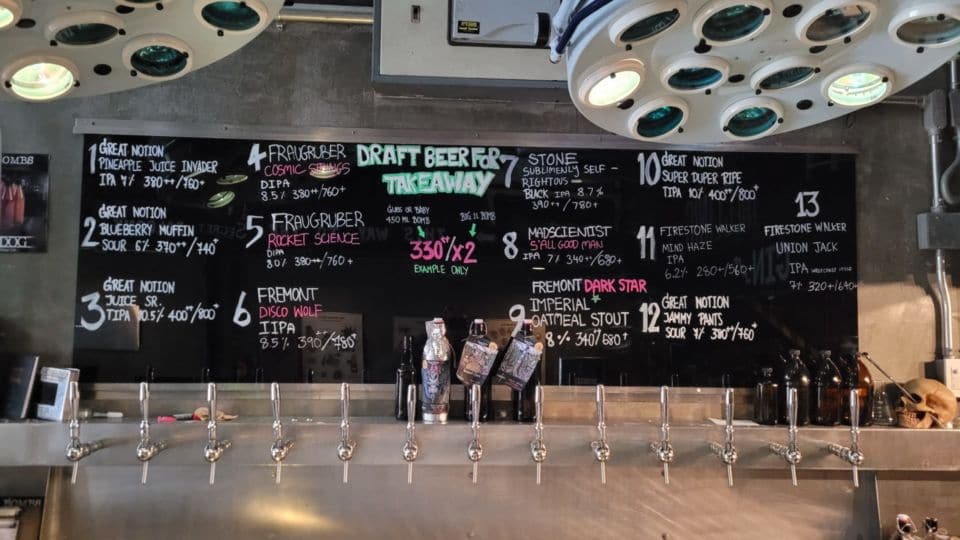 1 GREAT NOTION
PINEAPPLE JUICE INVADER
IPA 7% 380++/760+
2 GREAT NOTION
BLUEBERRY MUFFIN
SOUR 6% 370++/740+
3 GREAT NOTION
JUICE SR.
TIPA 10.5% 400++/800+
4 FRAUGRUBER
COSMIC
DIPA
8.5% 380++/760+
5 FRAUGRUBER
ROCKET SCIENCE
DIPA
8.0% 380++/760+
6 FREMONT
DISCO WOLF
IIPA
8.5% 390++/780+
DRAFT BEER FOR
TAKEAWAY
450 ML BOMB
BIG 1L BOMB
330++/x2
EXAMPLE ONLY
7 STONE
SUBLIMENLY SELF-
RIGHTOUS
BLACK IPA 8.7%
390++/780+
8 MADSCIENTIST
S'ALL GOOD MAN
IPA 7% 340++/680+
9 FREMONT DARK STAR
IMPERIAL
OATMEAL STOUT
8% 340++/680+
10 GREAT NOTION
SUPER DUPER RIPE
TIPA 10% 400++/800+
11 FIRESTONE WALKER
MIND HAZE
IPA
6.2% 280++/560++
12 GREAT NOTION
JAMMY PANTS
SOUR 7% 380++/760+
13
FIRESTONE WALKER
UNION JACK
IPA WEST COAST
7% 320++/640+
OMBS
DOG